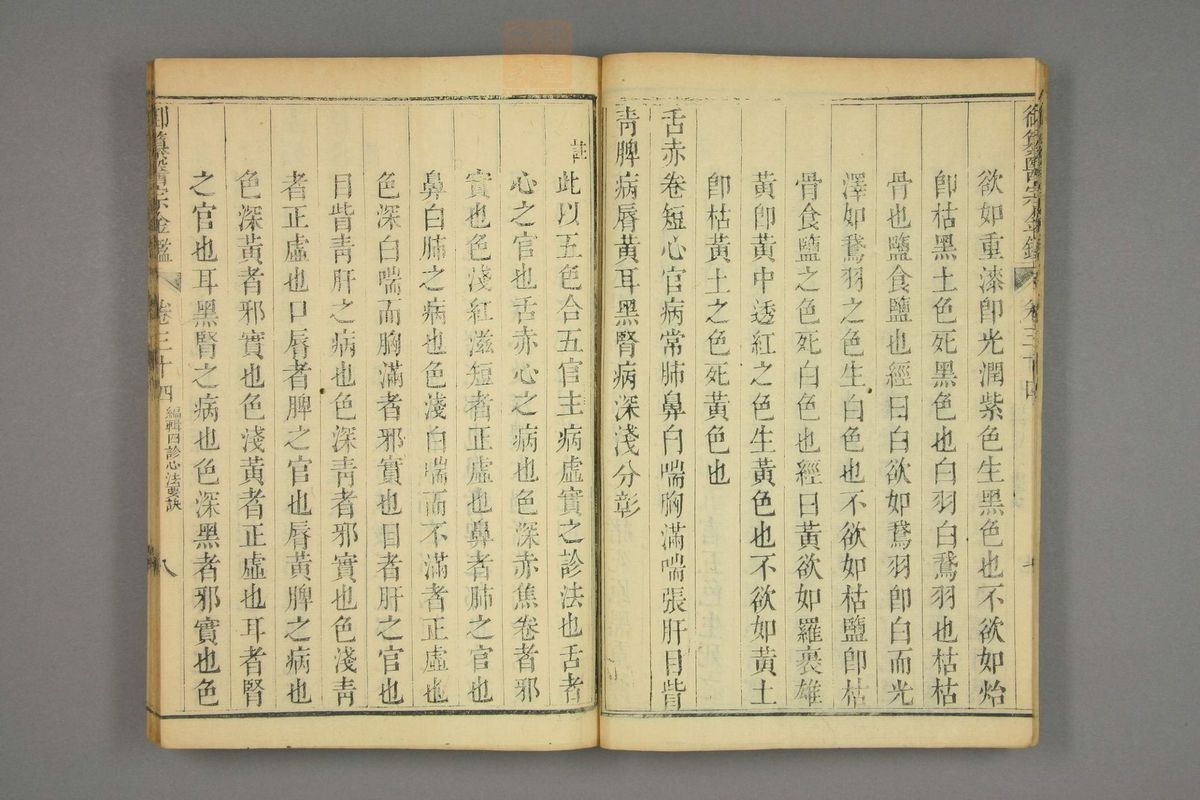 御纂醫宗金鑑 卷三十四 七
欲如重漆卽光潤紫色生黑色也不欲如炲
卽枯黑土色死黑色也白羽白鵞羽也枯枯
骨也鹽食鹽也經曰白欲如鵞羽卽白而光
澤如鵞羽之色生白色也不欲如枯鹽卽枯
骨食鹽之色死白色也經曰黃欲如羅裹雄
黃卽黃中透紅之色生黃色也不欲如黃土
卽枯黃土之色死黃色也
舌赤卷短心官病常肺鼻白喘胸滿喘張肝目眥
靑脾病唇黃耳黑腎病深淺分彰
註此以五色合五官主病虛實之診法也舌者
心之官也舌赤心之病也色深赤焦卷者邪
實也色淺紅滋短者正虛也鼻者肺之官也
鼻白肺之病也色淺白喘而不滿者正虛也
色深白喘而胸滿者邪實也目者肝之官也
目眥靑肝之病也色深靑者邪實也色淺靑
者正虛也口唇者脾之官也唇黃脾之病也
色深黃者邪實也色淺黃者正虛也耳者腎
之官也耳黑腎之病也色深黑者邪實也色
御纂醫宗金鑑 卷三十四 編輯四診心法要訣 八